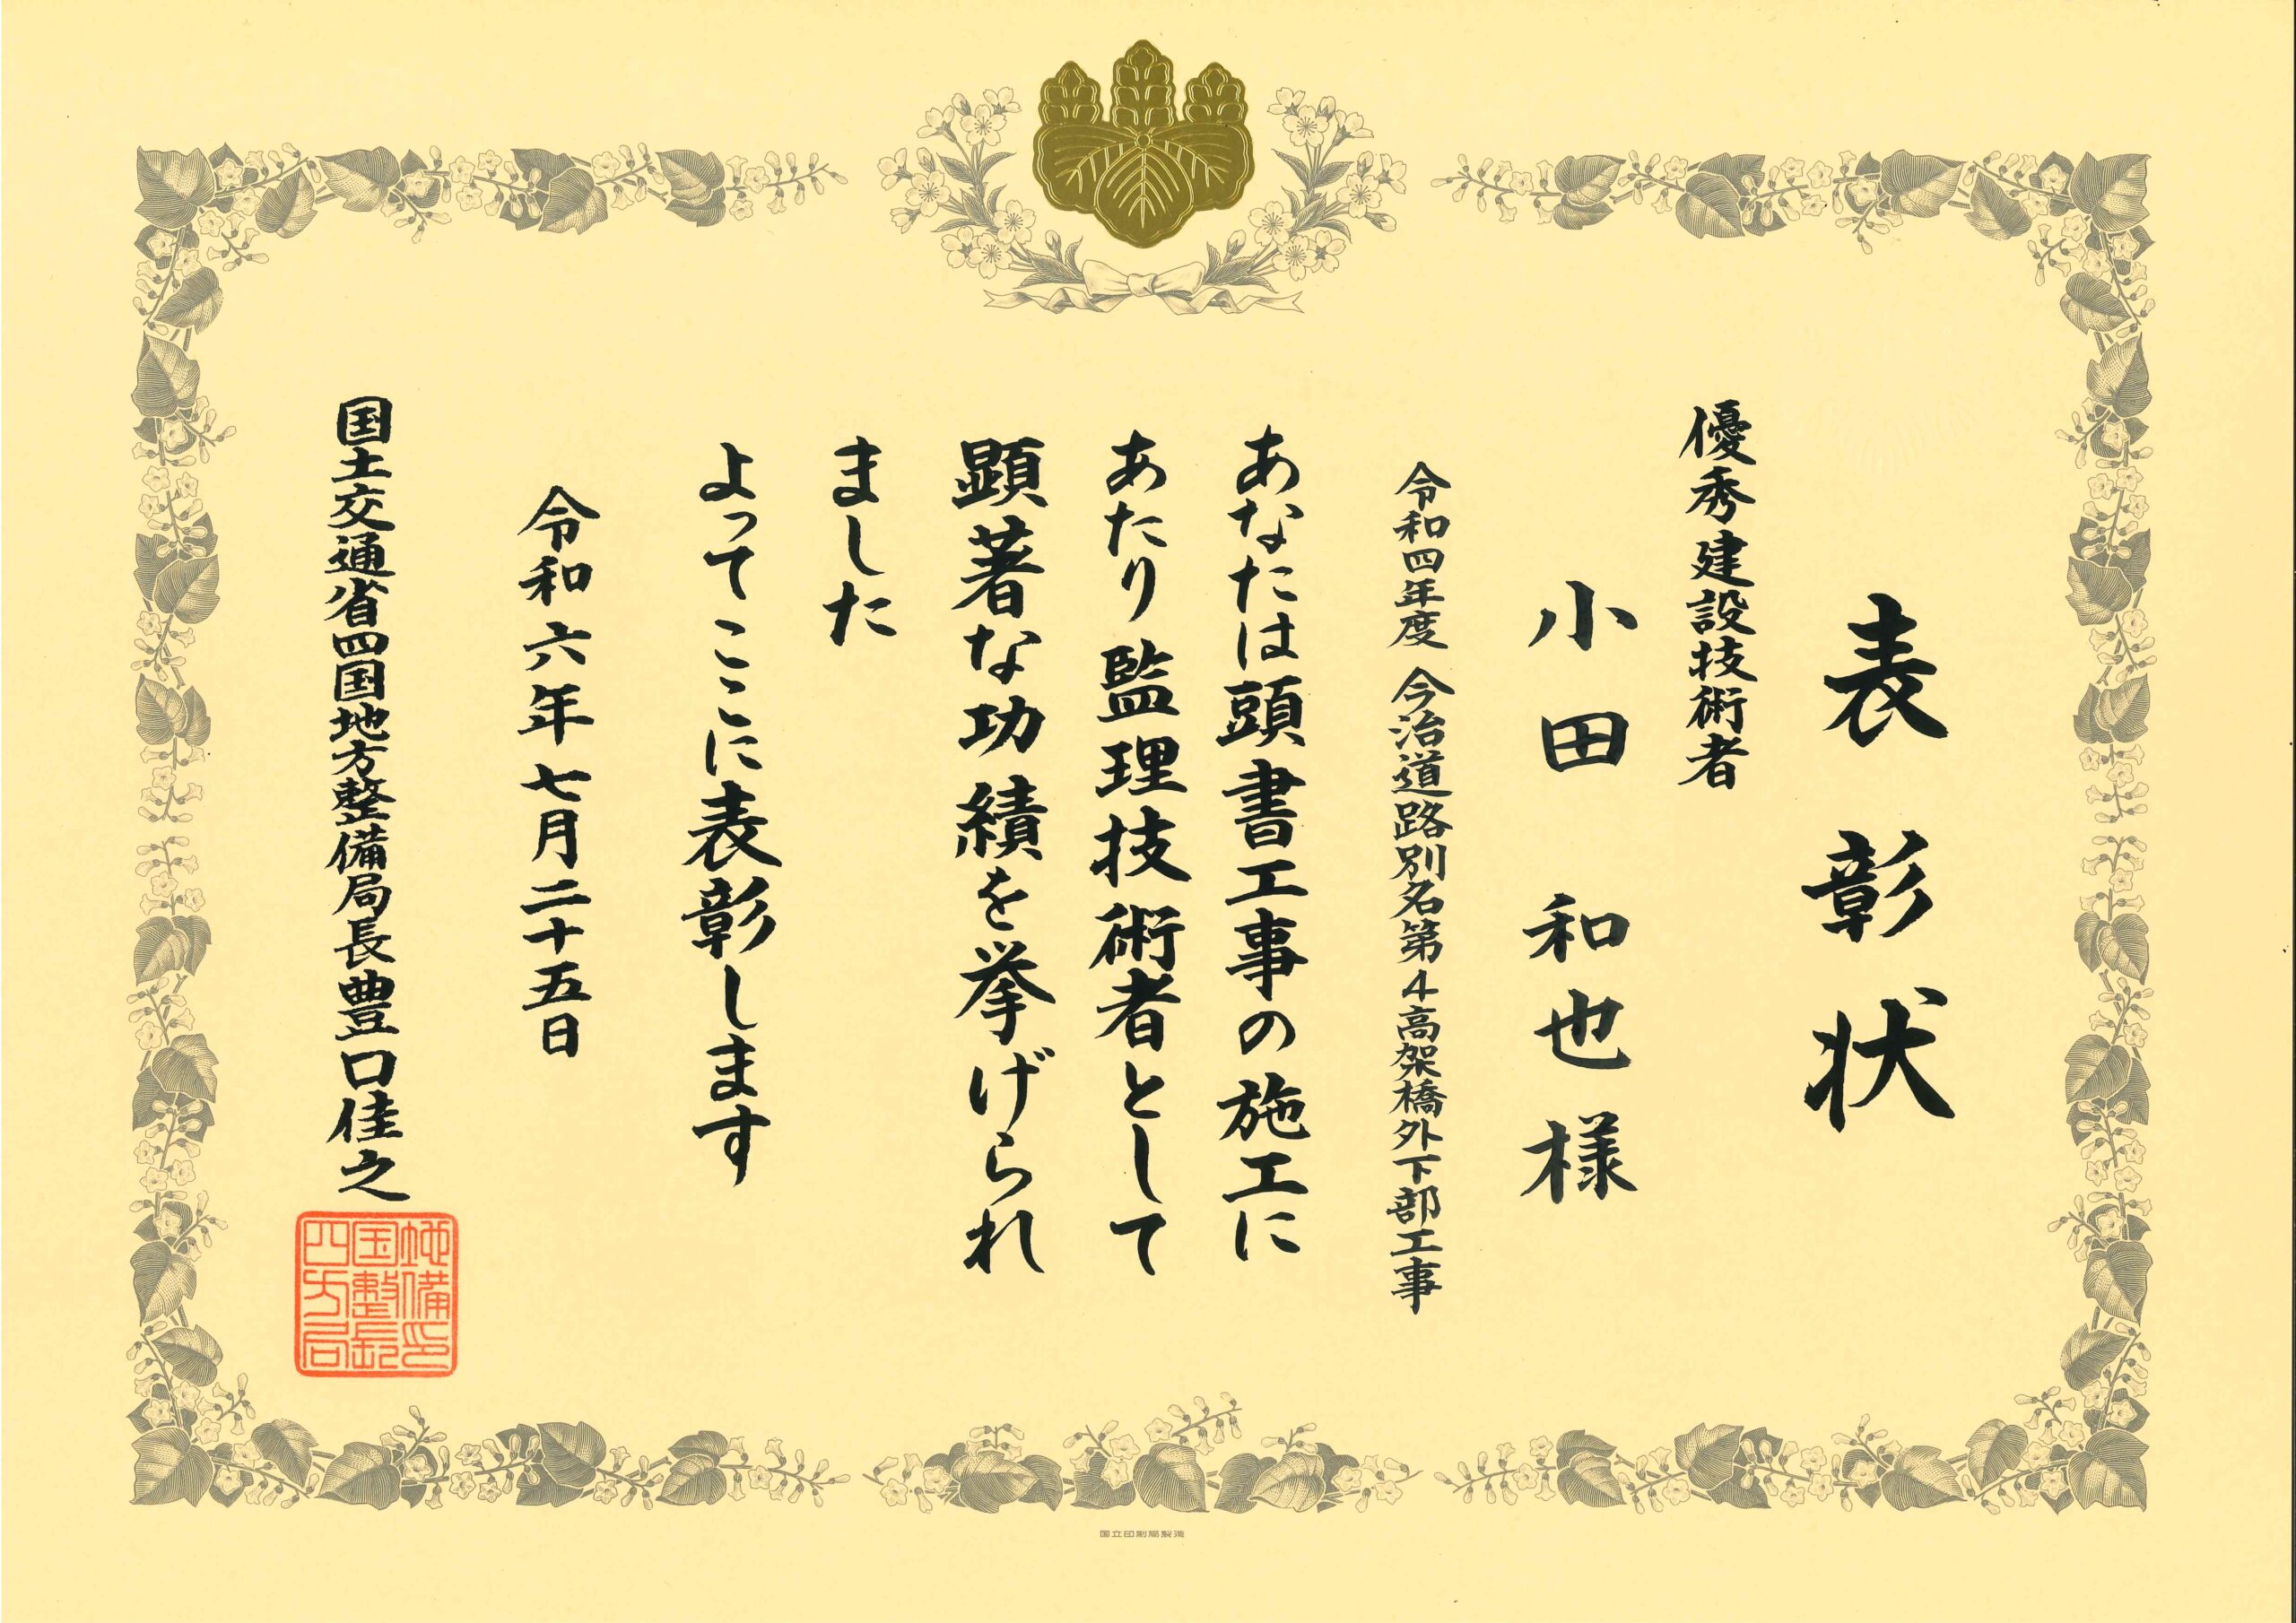 表彰状
優秀建設技術者
小田 和也 様
令和四年度 今治道路別名第4高架橋外下部工事
あなたは頭書工事の施工に
あたり監理技術者として
顕著な功績を挙げられ
ました
よってここに表彰します
令和六年七月二十五日
国土交通省四国地方整備局長豊口佳之
四国地方整備局長印
国立印刷局製造